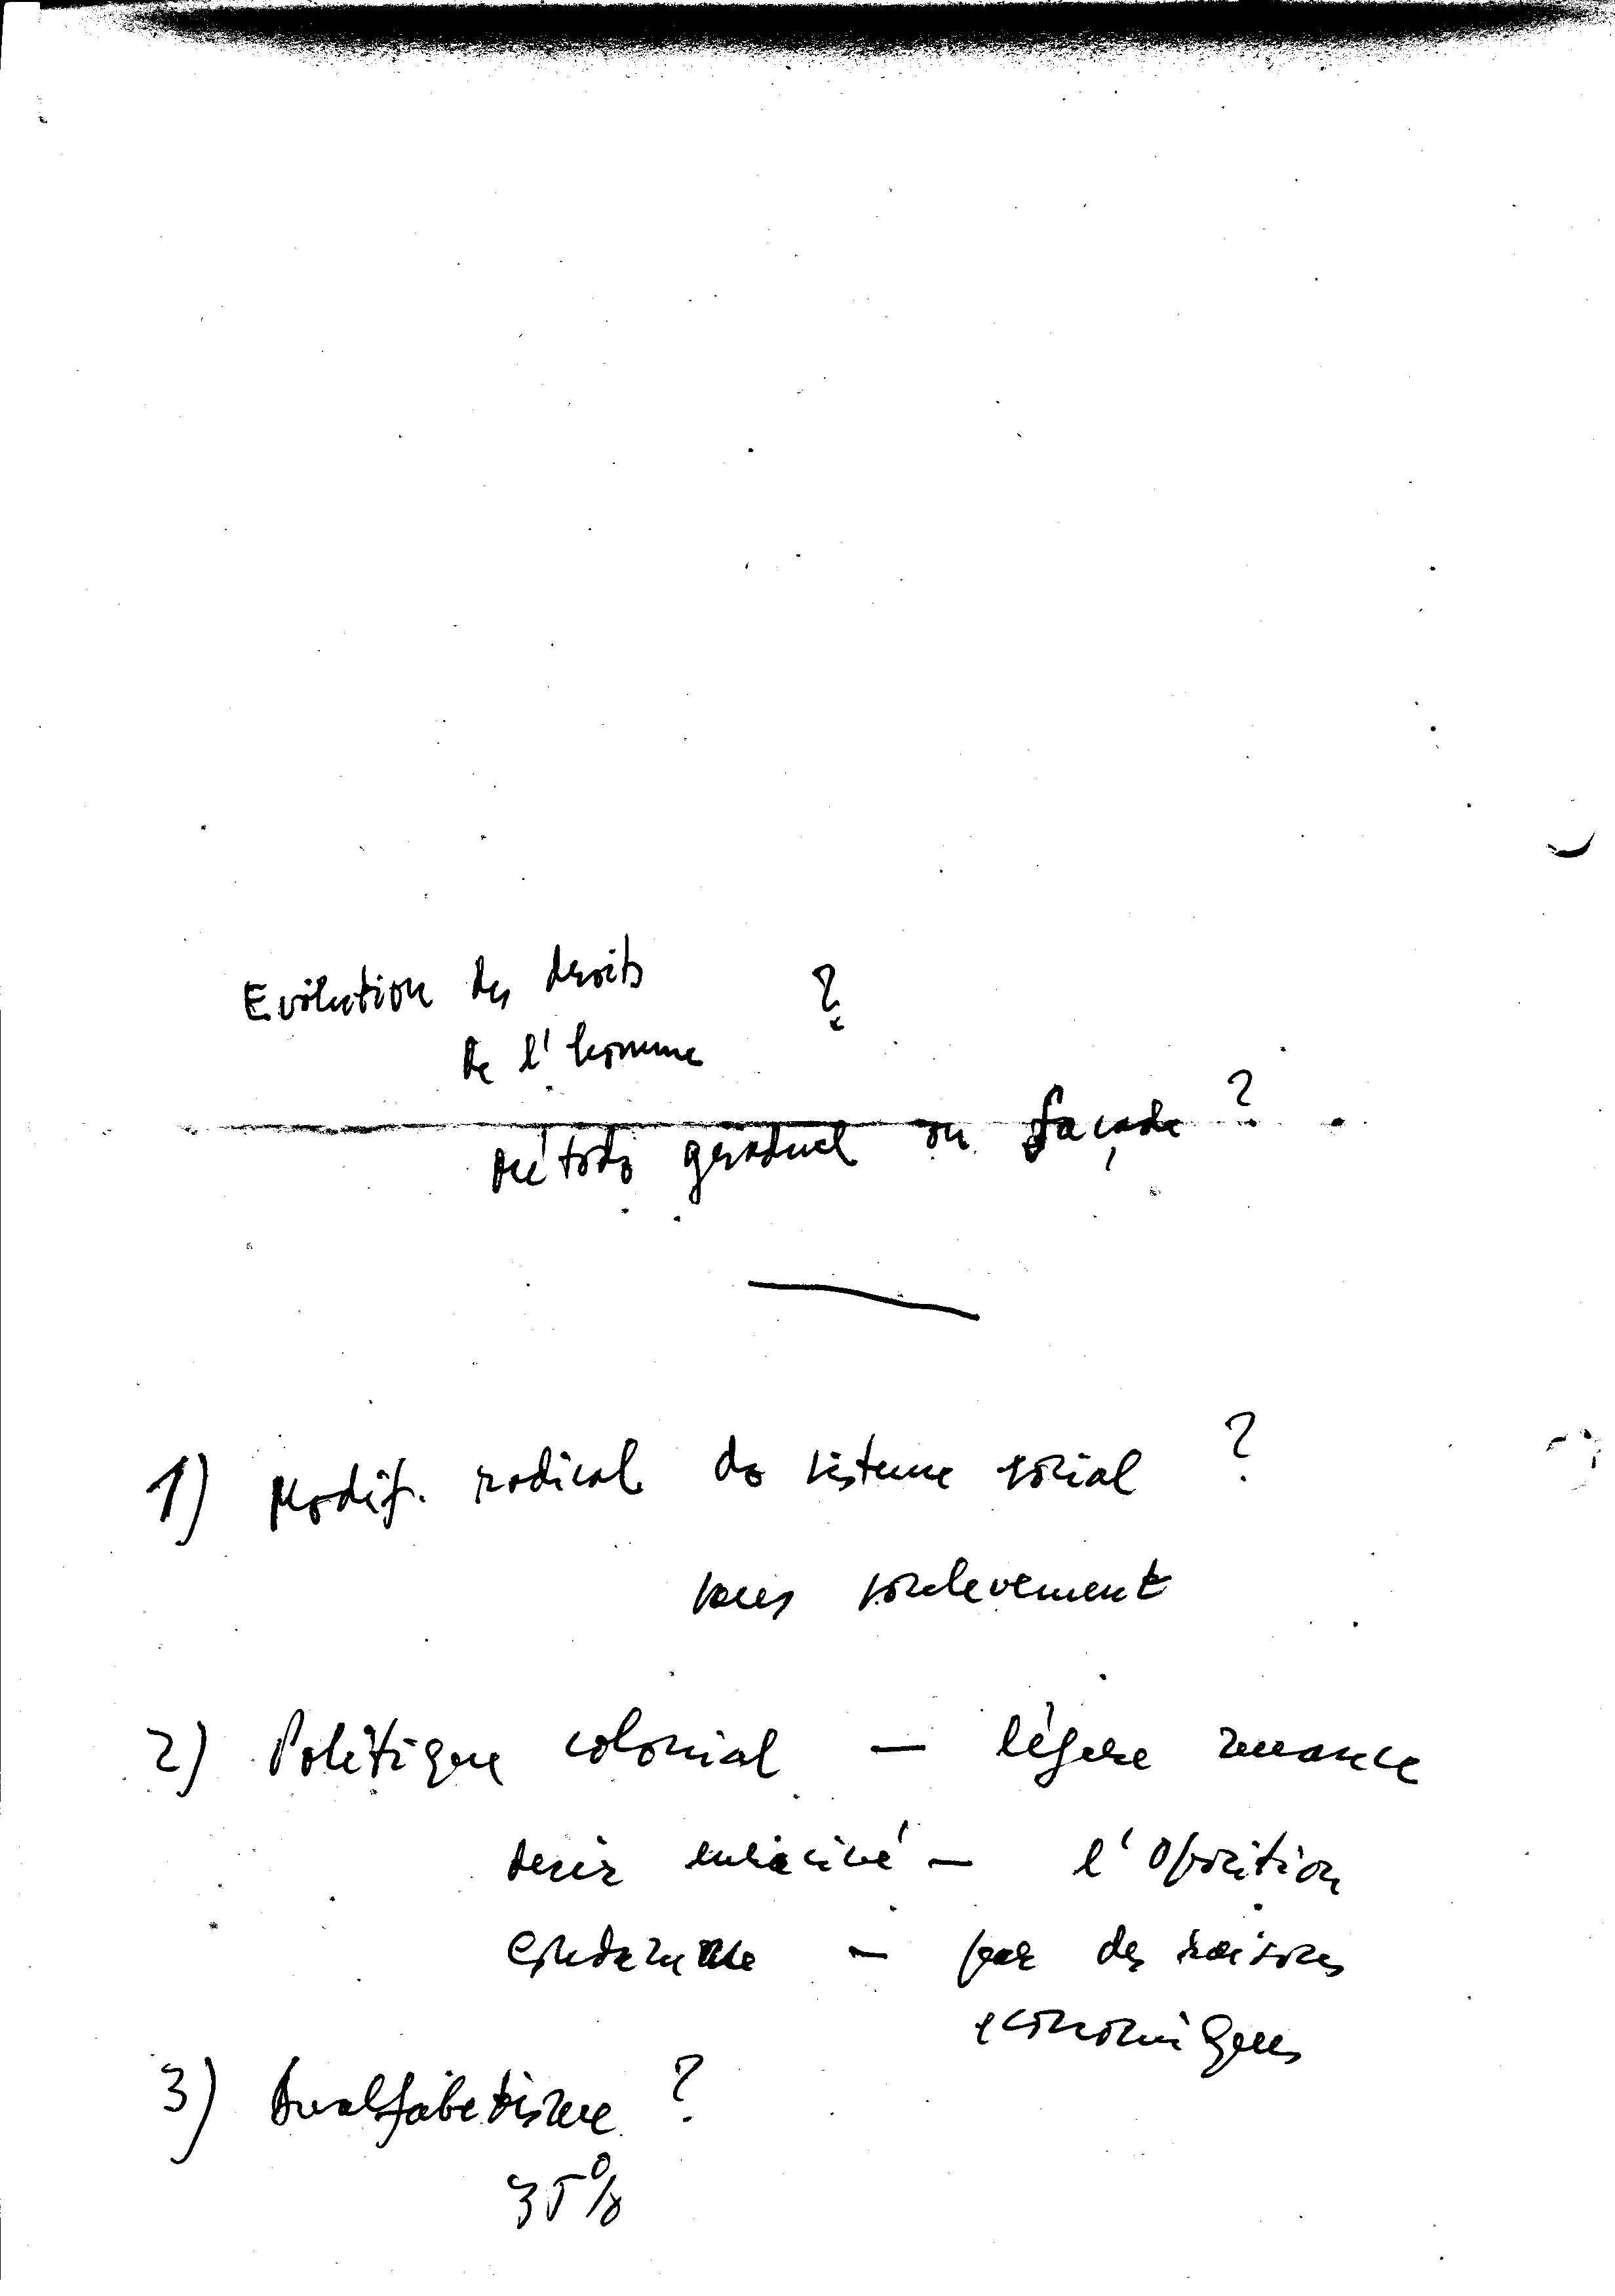 Evolution des droits ?
de l'homme
método graduel ou façade ?
1) Modif. radical do sisteme social ?
sans soulevement
2) Politique colonial — légere nuance
desir —  l'Oposition
— par des raisons
economiques
3) Analfabetisme ?
35%